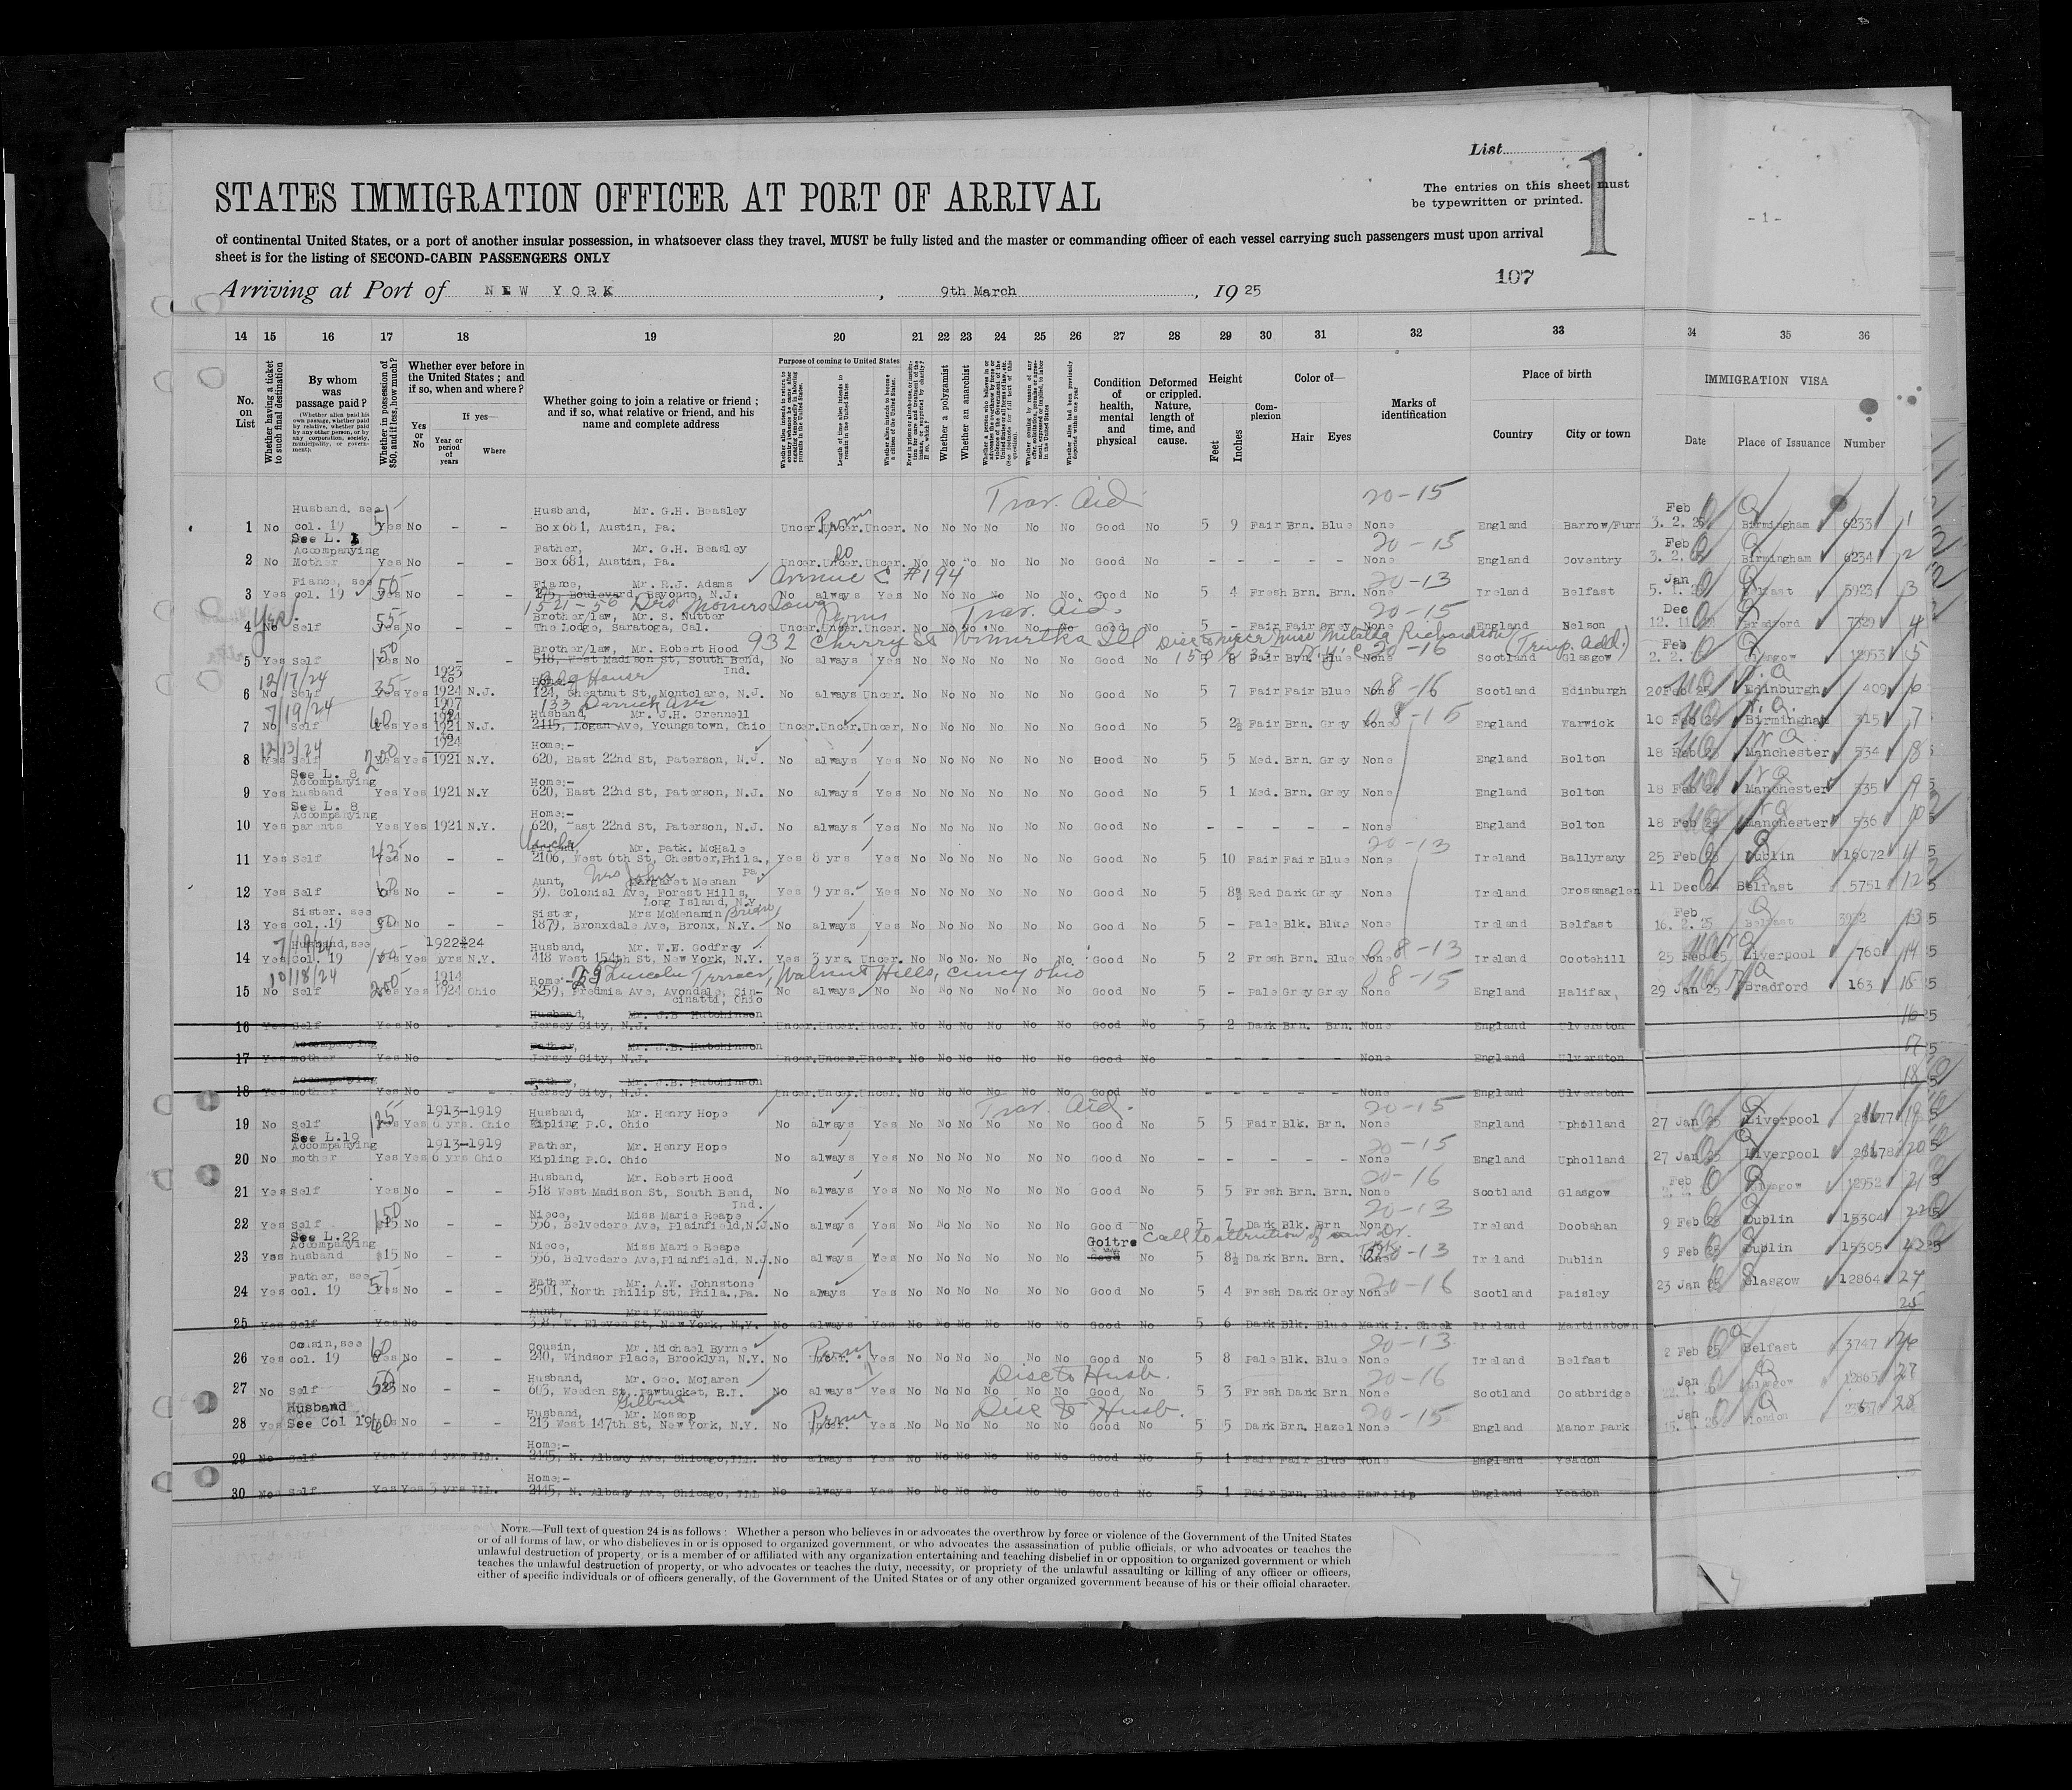 List
1
The entries on this sheet must
be typewritten or printed.
- 1 -
STATES IMMIGRATION OFFICER AT PORT OF ARRIVAL
of continental United States, or a port of another insular possession, in whatsoever class they travel, MUST be fully listed and the master or commanding officer of each vessel carrying such passengers must upon arrival
sheet is for the listing of SECOND-CABIN PASSENGERS ONLY
107
Arriving at Port of NEW YORK, 9th March, 1925
14 15 16 17 18 19 20 21 22 23 24 25 26 27 28 29 30 31 32 33 34 35 36
No. on List
Whether having a ticket to such final destination
By whom was passage paid?
Whether in possession of $50, and if less, how much?
Whether ever before in the United States; and if so, when and where?
Yes or No
If yes—
Year or period of years
Where
Whether going to join a relative or friend; and if so, what relative or friend, and his name and complete address
Purpose of coming to United States
Whether a polygamist
Whether an anarchist
Condition of health, mental and physical
Deformed or crippled. Nature, length of time, and cause.
Height
Feet
Inches
Complexion
Color of—
Hair Eyes
Marks of identification
Place of birth
Country
City or town
IMMIGRATION VISA
Date Place of Issuance Number
Trav. Aid 20-15
Husband, see Husband, Mr. G.H. Beasley Feb
1 No col. 19 Yes No - - Box 681, Austin, Pa. Uncer. Uncer. Uncer. No No No No No No Good No 5 9 Fair Brn. Blue None England Barrow/Furn 3. 2. 25 Birmingham 6233 1
See L. 1
Accompanying Father, Mr. G.H. Beasley 20-15 Feb
2 No Mother Yes No - - Box 681, Austin, Pa. Uncer. Uncer. Uncer. No No No No No No Good No - - - - - None England Coventry 3. 2. 25 Birmingham 6234 2
Fiance, see Fiance, Mr. R.J. Adams Avenue C #194 20-13 Jan
3 Yes col. 19 Yes No - - 275, Boulevard, Bayonne, N.J. No always Yes No No No No No No Good No 5 4 Fresh Brn. Brn. None Ireland Belfast 5. 1. 25 Belfast 5923 3
Brother/law, Mr. S. Nutter Trav. Aid. 20-15 Dec
4 No Self Yes No - - The Lodge, Saratoga, Cal. Uncer. Uncer. Uncer. No No No No No No Good No 5 - Fair Fair Grey None England Nelson 12. 11. Bradford 7329 4
932 Cherry St Winnetka Ill
Brother/law, Mr. Robert Hood 20-16 (Temp. Add.) Feb
5 Yes Self Yes No - - 518, West Madison St, South Bend, Ind. No always Yes No No No No No No Good No 5 8 Fair Brn. Blue None Scotland Glasgow 2. 2. Glasgow 12953 5
12/17/24 1923 to Home:-
6 No Self Yes Yes 1924 N.J. 124, Chestnut St, Montclare, N.J. No always Uncer. No No No No No No Good No 5 7 Fair Fair Blue None Scotland Edinburgh 20 Feb 25 Edinburgh 409 6
7/19/24 1907 Husband, Mr. J.H. Crennell
7 No Self Yes Yes 1921 N.J. 2415, Logan Ave, Youngstown, Ohio Uncer. Uncer. Uncer. No No No No No No Good No 5 2½ Fair Brn. Grey None England Warwick 10 Feb 25 Birmingham 315 7
12/13/24 1924 Home:-
8 Yes Self Yes Yes 1921 N.Y. 620, East 22nd St, Paterson, N.J. No always Yes No No No No No No Good No 5 5 Med. Brn. Grey None England Bolton 18 Feb 25 Manchester 534 8
See L. 8
Accompanying Home:-
9 Yes husband Yes Yes 1921 N.Y 620, East 22nd St, Paterson, N.J. No always Yes No No No No No No Good No 5 1 Med. Brn. Grey None England Bolton 18 Feb 25 Manchester 535 9
See L. 8
Accompanying Home:-
10 Yes parents Yes Yes 1921 N.Y. 620, East 22nd St, Paterson, N.J. No always Yes No No No No No No Good No - - - - - None England Bolton 18 Feb 25 Manchester 536 10
Mr. Patk. McHale 20-13
11 Yes Self 45 Yes No - - 2106, West 6th St, Chester, Phila., Pa. Yes 8 yrs Yes No No No No No No Good No 5 10 Fair Fair Blue None Ireland Ballyrany 25 Feb 25 Dublin 16072
Aunt, Mrs John Margaret Meenan
12 Yes Self 60 Yes No - - 39, Colonial Ave, Forest Hills, Long Island, N.Y. Yes 9 yrs. Yes No No No No No No Good No 5 8½ Red Dark Grey None Ireland Crossmaglen 11 Dec 24 Belfast 5751 12
Sister, see Sister, Mrs McMenamin Feb
13 Yes col. 19 Yes No - - 1879, Bronxdale Ave, Bronx, N.Y. No always Yes No No No No No No Good No 5 - Pale Blk. Blue None Ireland Belfast 16. 2. 25 Belfast 13
Husband, see 1922 24 Husband, Mr. W.E. Godfrey
14 Yes col. 19 100 Yes yrs N.Y. 418 West 154th St, New York, N.Y. Yes 3 yrs. Uncer. No No No No No No Good No 5 2 Fresh Brn. Blue None Ireland Cootehill 25 Feb 25 Liverpool 760 14
10/18/24 1914 to Home:- 29 Lincoln Terrace, Walnut Hills, Cincy Ohio
15 No Self 200 Yes Yes 1924 Ohio 3259, Fredmia Ave, Avondale, Cincinatti, Ohio No always No No No No No No No Good No 5 - Pale Grey Grey None England Halifax, 29 Jan 25 Bradford 163 15
Husband, Mr. J.B. Hutchinson
16 Yes Self Yes No - - Jersey City, N.J. Uncer. Uncer. Uncer. No No No No No No Good No 5 2 Dark Brn. Brn. None England Ulverston 16
Accompanying Father, Mr. J.B. Hutchinson
17 Yes mother Yes No - - Jersey City, N.J. Uncer. Uncer. Uncer. No No No No No No Good No - - - - - None England Ulverston 17
Accompanying Father, Mr. J.B. Hutchinson
18 Yes mother Yes No - - Jersey City, N.J. Uncer. Uncer. Uncer. No No No No No No Good No - - - - - None England Ulverston 18
1913-1919 Husband, Mr. Henry Hope Trav. Aid. 20-15
19 No Self 125 Yes Yes 6 yrs. Ohio Kipling P.O. Ohio No always Yes No No No No No No Good No 5 5 Fair Blk. Brn. None England Upholland 27 Jan 25 Liverpool 19
See L.19
Accompanying 1913-1919 Father, Mr. Henry Hope 20-15
20 No mother Yes Yes 6 yrs Ohio Kipling P.O. Ohio No always Yes No No No No No No Good No - - - - - None England Upholland 27 Jan 25 Liverpool 20
Husband, Mr. Robert Hood 20-16 Feb
21 Yes Self Yes No - - 518 West Madison St, South Bend, Ind. No always Yes No No No No No No Good No 5 5 Fresh Brn. Brn. None Scotland Glasgow Glasgow 12952 21
Niece, Miss Marie Reape 20-13
22 Yes Self No - - 556, Belvedere Ave, Plainfield, N.J. No always Yes No No No No No No Good No 5 7 Dark Blk. Brn None Ireland Doobahan 9 Feb 25 Dublin 15304 22
See L.22
Accompanying Niece, Miss Marie Reape Goitre Call to attention of
23 Yes husband $15 No - - 556, Belvedere Ave, Plainfield, N.J. No always Yes No No No No No No Good No 5 8½ Dark Brn. Brn. None Ireland Dublin 9 Feb 25 Dublin 15305
Father, see Father, Mr. A.W. Johnstone 20-16
24 Yes col. 19 57 Yes No - - 2501, North Philip St, Phila., Pa. No always Yes No No No No No No Good No 5 4 Fresh Dark Grey None Scotland Paisley 23 Jan 25 Glasgow 12864 24
Aunt, Mrs Kennedy
25 Yes Self Yes No - - 338, W. Eleven St, New York, N.Y. No always Yes No No No No No No Good No 5 6 Dark Blk. Blue Mark L. Cheek Ireland Martinstown 25
Cousin, see Cousin, Mr. Michael Byrne 20-13
26 Yes col. 19 60 Yes No - - 240, Windsor Place, Brooklyn, N.Y. No Perm Yes No No No No No No Good No 5 8 Pale Blk. Blue None Ireland Belfast 2 Feb 25 Belfast 3747 26
Husband, Mr. Geo. McLaren Disc to Husb. 20-16 Jan
27 No Self 50 No - - 603, Weeden St, Pawtucket, R.I. No always Yes No No No No No No Good No 5 3 Fresh Dark Brn None Scotland Coatbridge Glasgow 12865 27
Husband Husband, Gilbert Mr. Mossop Disc to Husb. 20-15 Jan
28 Yes See Col 19 No - - 213 West 147th St, New York, N.Y. No Perm Yes No No No No No No Good No 5 5 Dark Brn. Hazel None England Manor Park London 28
Home:-
29 No Self Yes Yes 4 yrs Ill. 2445, N. Albany Ave, Chicago, Ill. No always Yes No No No No No No Good No 5 1 Fair Fair Blue None England Yeadon
Home:-
30 No Self Yes Yes 3 yrs Ill. 2445, N. Albany Ave, Chicago, Ill No always Yes No No No No No No Good No 5 1 Fair Brn. Blue Hare Lip England Yeadon
NOTE.—Full text of question 24 is as follows: Whether a person who believes in or advocates the overthrow by force or violence of the Government of the United States
or of all forms of law, or who disbelieves in or is opposed to organized government, or who advocates the assassination of public officials, or who advocates or teaches the
unlawful destruction of property, or is a member of or affiliated with any organization entertaining and teaching disbelief in or opposition to organized government or which
teaches the unlawful destruction of property, or who advocates or teaches the duty, necessity, or propriety of the unlawful assaulting or killing of any officer or officers,
either of specific individuals or of officers generally, of the Government of the United States or of any other organized government because of his or their official character.